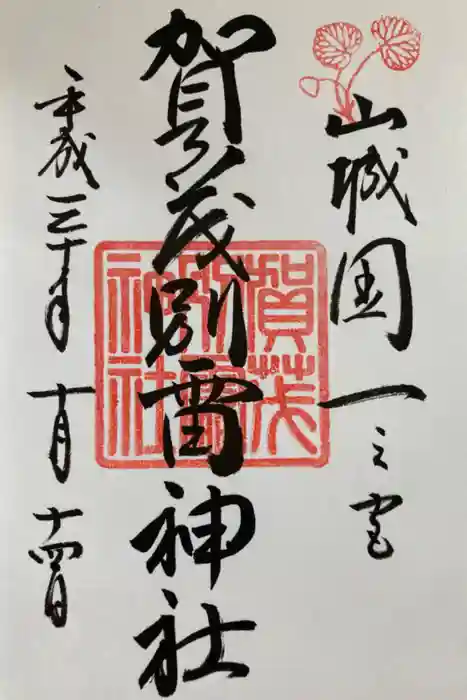 山城国一之宮
賀茂別雷神社
賀茂別雷神社
平成三十年十月十四日